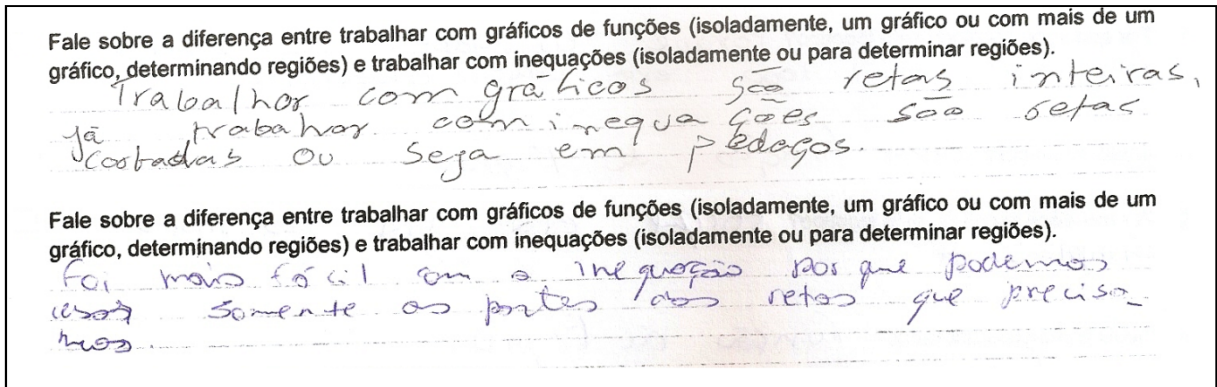 Fale sobre a diferença entre trabalhar com gráficos de funções (isoladamente, um gráfico ou com mais de um
gráfico, determinando regiões) e trabalhar com inequações (isoladamente ou para determinar regiões).
Trabalhar com gráficos são retas inteiras,
já trabahar com inequações são retas
cortadas ou seja em pedaços.
Fale sobre a diferença entre trabalhar com gráficos de funções (isoladamente, um gráfico ou com mais de um
gráfico, determinando regiões) e trabalhar com inequações (isoladamente ou para determinar regiões).
Foi mais fácil com a inequação porque podemos
usar somente as partes das retas que precisa_
mos.